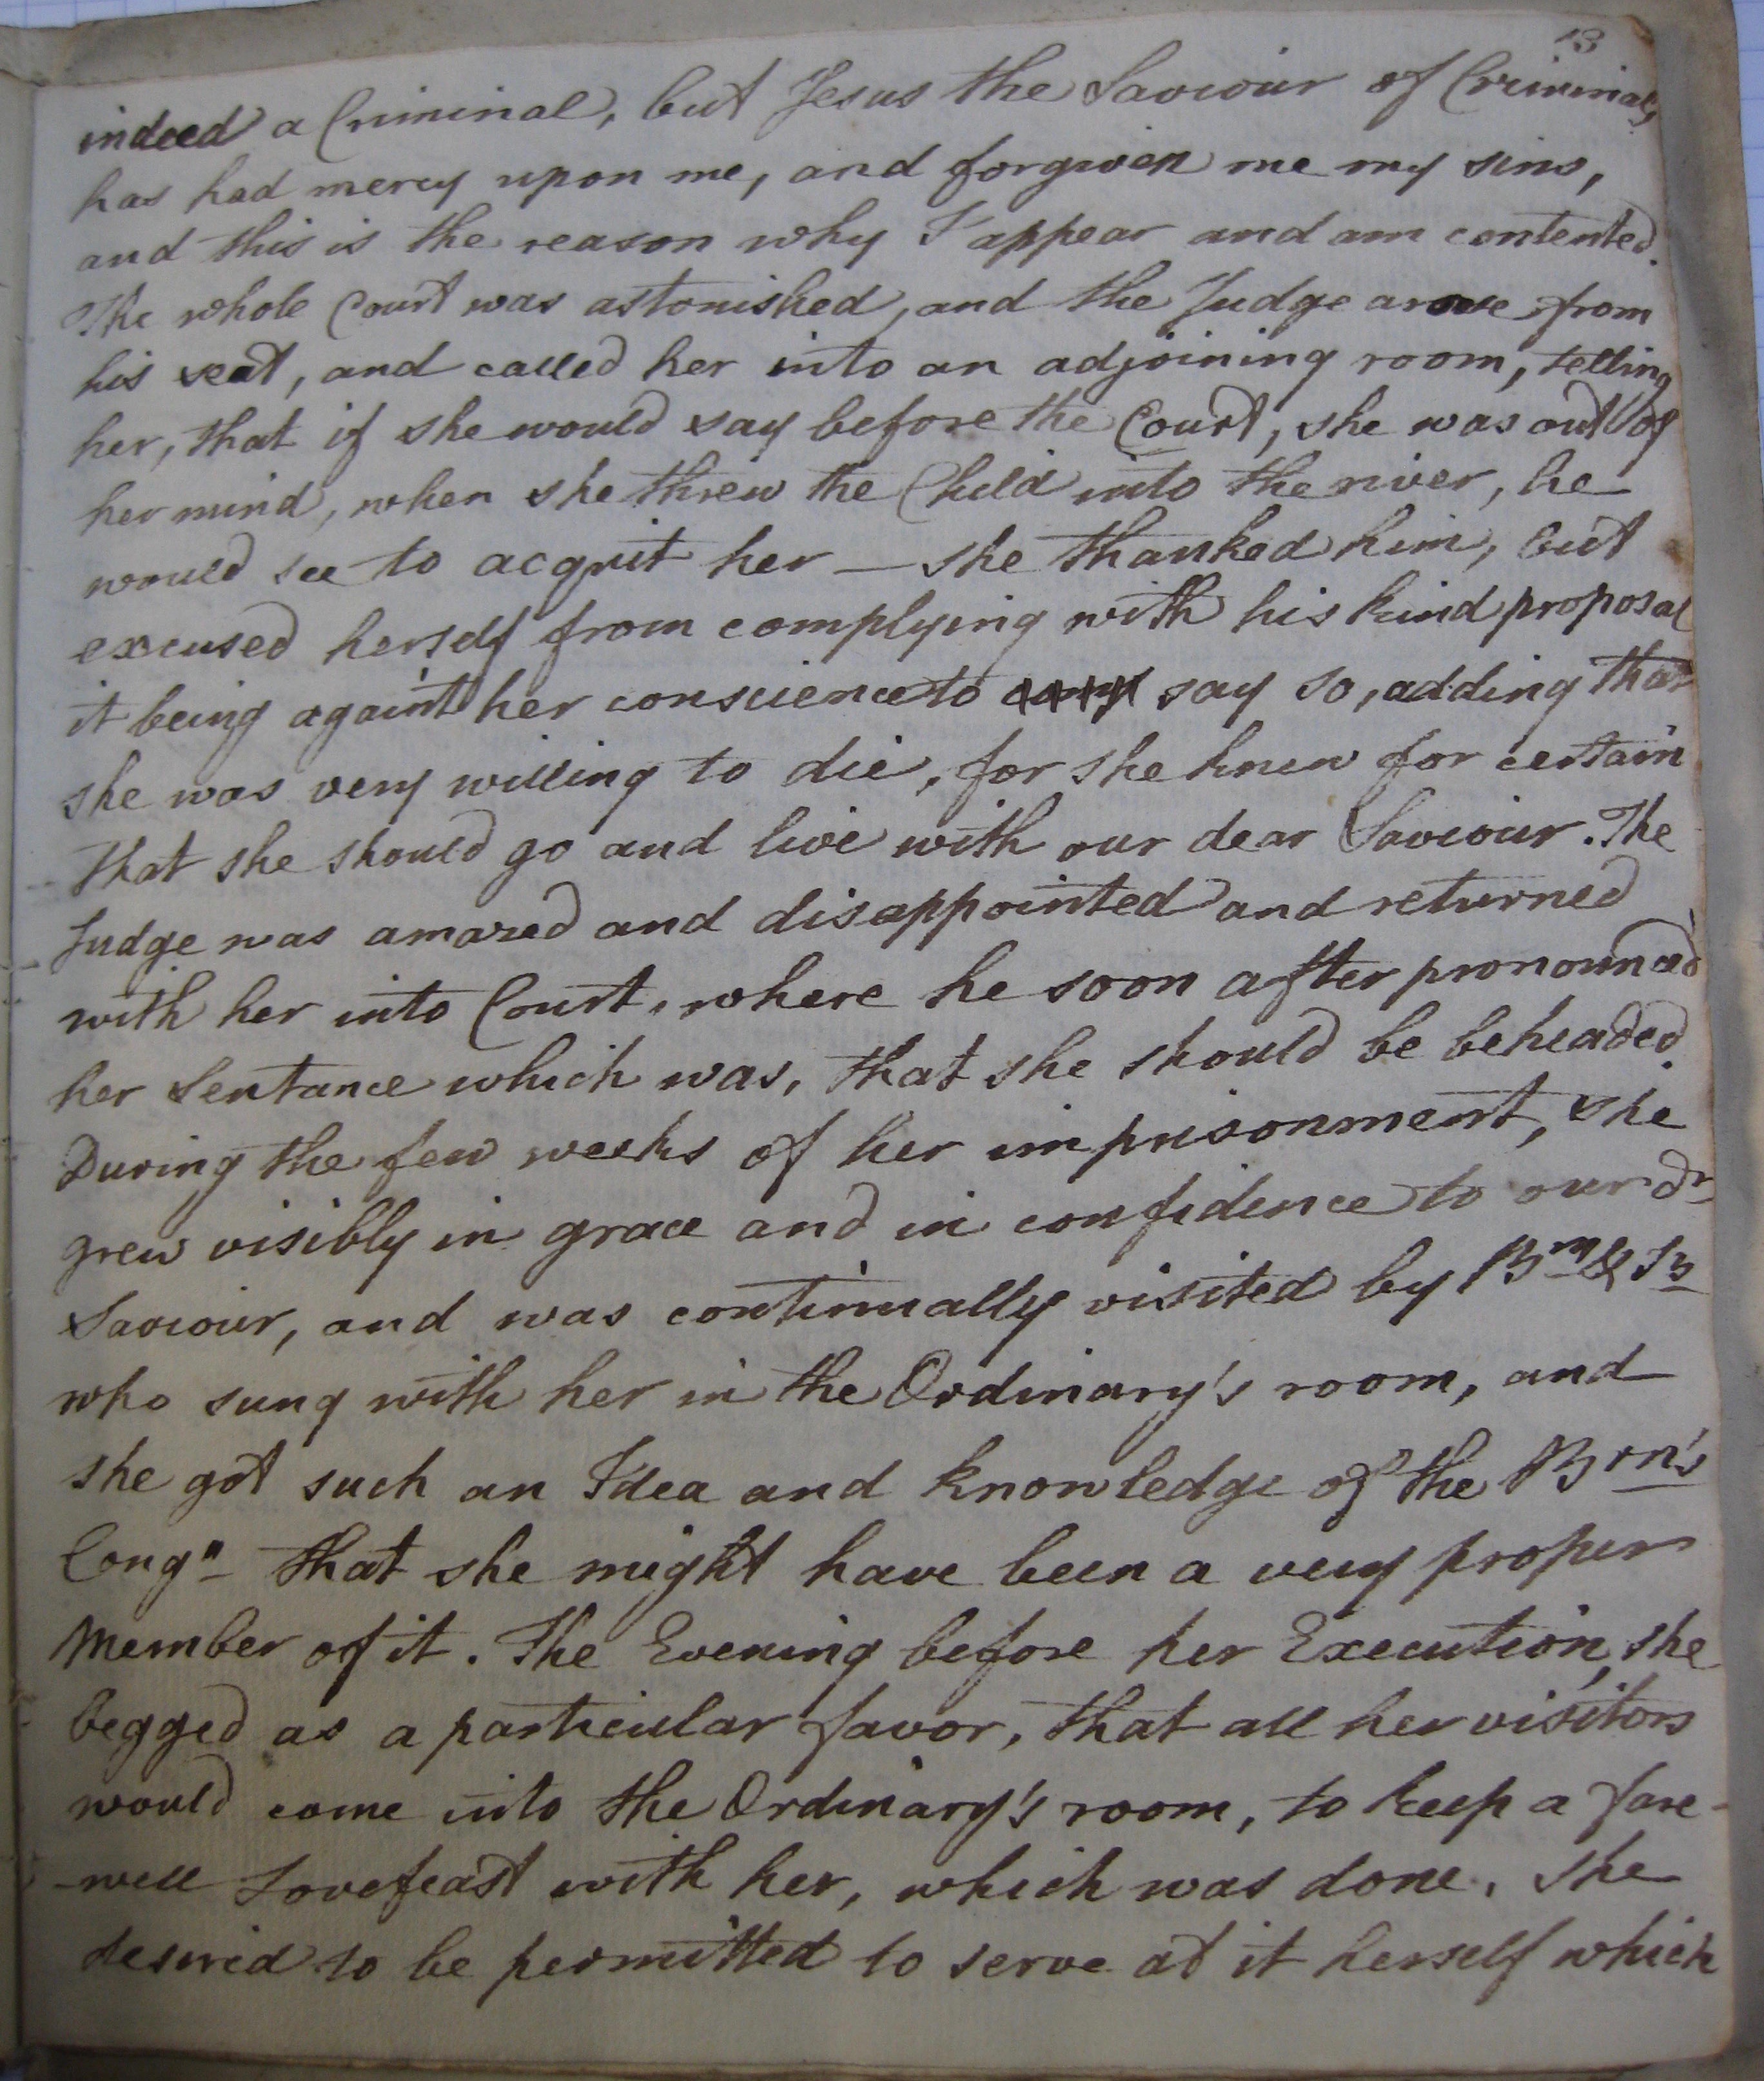 13
indeed a Criminal, but Jesus the Saviour of Criminals,
has had mercy upon me, and forgiven me my sins,
and this is the reason why I appear and am contented.
The whole Court was astonished, and the Judge arose from
his seat, and called her into an adjoining room, telling
her, that if she would say before the Court, she was out of
her mind, when she threw the Child into the river, he
would see to acquit her — she thanked him, but
excused herself from complying with his kind proposal
it being against her conscience to say so, adding that
she was very willing to die, for she knew for certain
that she should go and live with our dear Saviour. The
Judge was amazed and disappointed and returned
with her into Court, where he soon after pronounced
her Sentance which was, that she should be beheaded.
During the few weeks of her imprisonment, she
grew visibly in grace and in confidence to our dr
Saviour, and was continually visited by Brn & Srs
who sung with her in the Ordinary's room, and
she got such an Idea and knowledge of the Brn's
Congn that she might have been a very proper
Member of it. The Evening before her Execution, she
begged as a particular favor, that all her visitors
would come into the Ordinary's room, to keep a fare-
-well Lovefeast with her, which was done. She
desired to be permitted to serve at it herself which